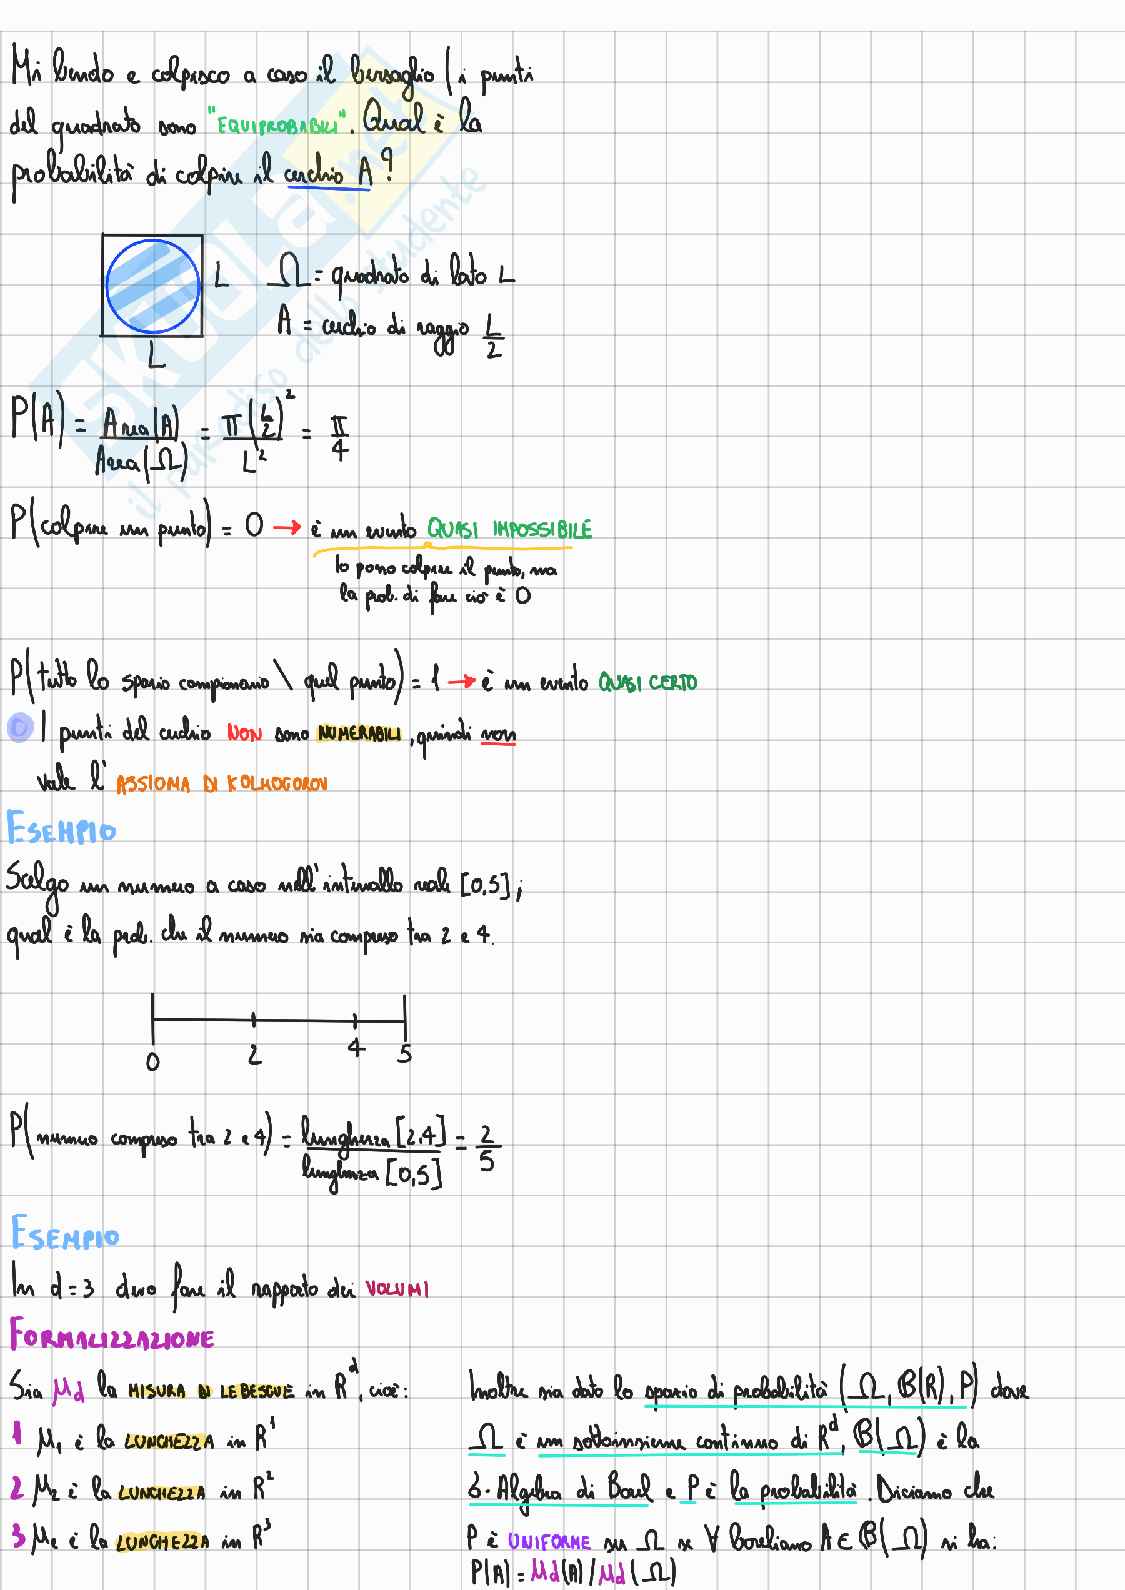 Mi bendo e colpisco a caso il bersaglio (i punti
del quadrato sono "EQUIPROBABILI". Qual è la
probabilità di colpire il cerchio A?
L Ω = quadrato di lato L
A = cerchio di raggio L/2
L
P(A) = Area(A)/Area(Ω) = π(L/2)²/L² = π/4
P(colpire un punto) = 0 → è un evento QUASI IMPOSSIBILE
Io posso colpire il punto, ma
la prob. di fare ciò è 0
P(tutto lo spazio campionario \ quel punto) = 1 → è un evento QUASI CERTO
I punti del cerchio NON sono NUMERABILI, quindi non
vale l' ASSIOMA DI KOLMOGOROV
ESEMPIO
Scelgo un numero a caso nell'intervallo reale [0,5];
qual è la prob. che il numero sia compreso tra 2 e 4.
0 2 4 5
P(numero compreso tra 2 e 4) = lunghezza [2,4]/lunghezza [0,5] = 2/5
ESEMPIO
In d=3 devo fare il rapporto dei VOLUMI
FORMALIZZAZIONE
Sia μd la MISURA DI LEBESGUE in R^d, cioè:
1 μ₁ è la LUNGHEZZA in R¹
2 μ₂ è la LUNGHEZZA in R²
3 è la LUNGHEZZA in R³
Inoltre sia dato lo spazio di probabilità (Ω, B(R), P) dove
Ω è un sottoinsieme continuo di R^d, B(Ω) è la
σ-Algebra di Borel e P è la probabilità. Diciamo che
P è UNIFORME su Ω se ∀ boreliano A ∈ B(Ω) si ha:
P(A) = μd(A)/μd(Ω)
skuola.net
il paradiso dello studente